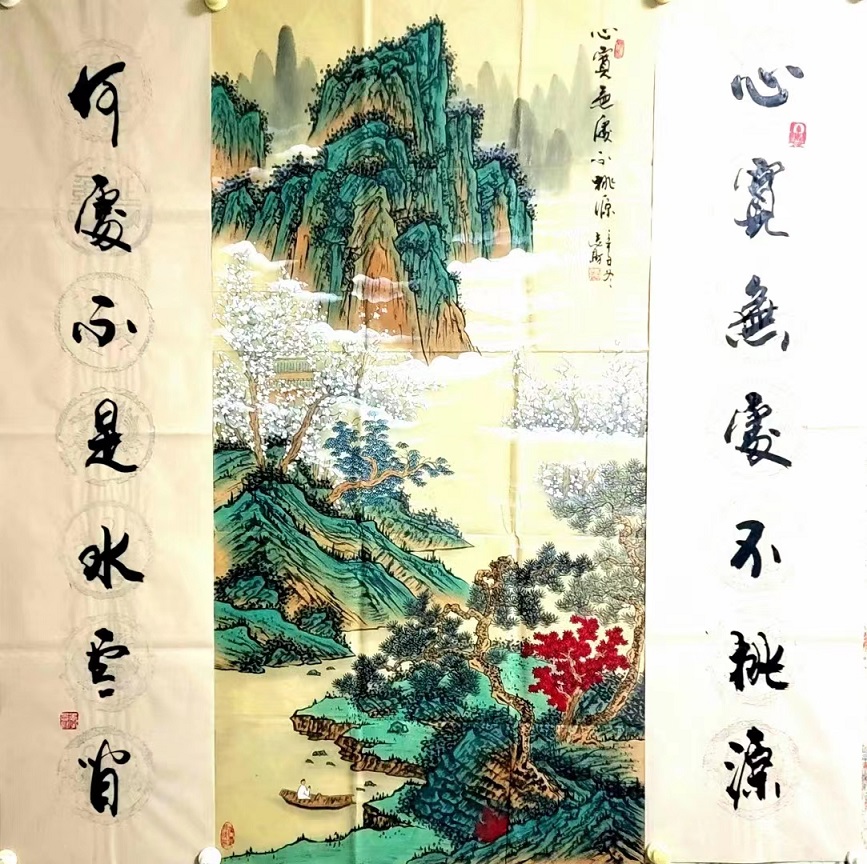 心寬無處不桃源
心寬無處不桃源
辛丑冬
何處不是水雲間